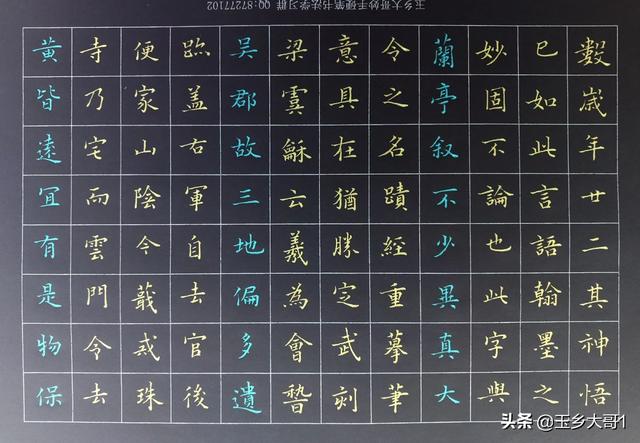 數歲年廿二其神悟
已如此言語翰墨之
妙固不論也此字與
蘭亭叙不少異真大
令之名蹟經重摹筆
意具在猶勝定武刻
梁虞龢云羲為會
吴郡故三地偏多遺
跡盖右軍自去官後
便家山陰今蕺戒珠
寺乃宅而雲門令去
黄皆遠宜有是物保
玉乡大哥妙手硬笔书法学习群 QQ:87277102
头条 @玉乡大哥1